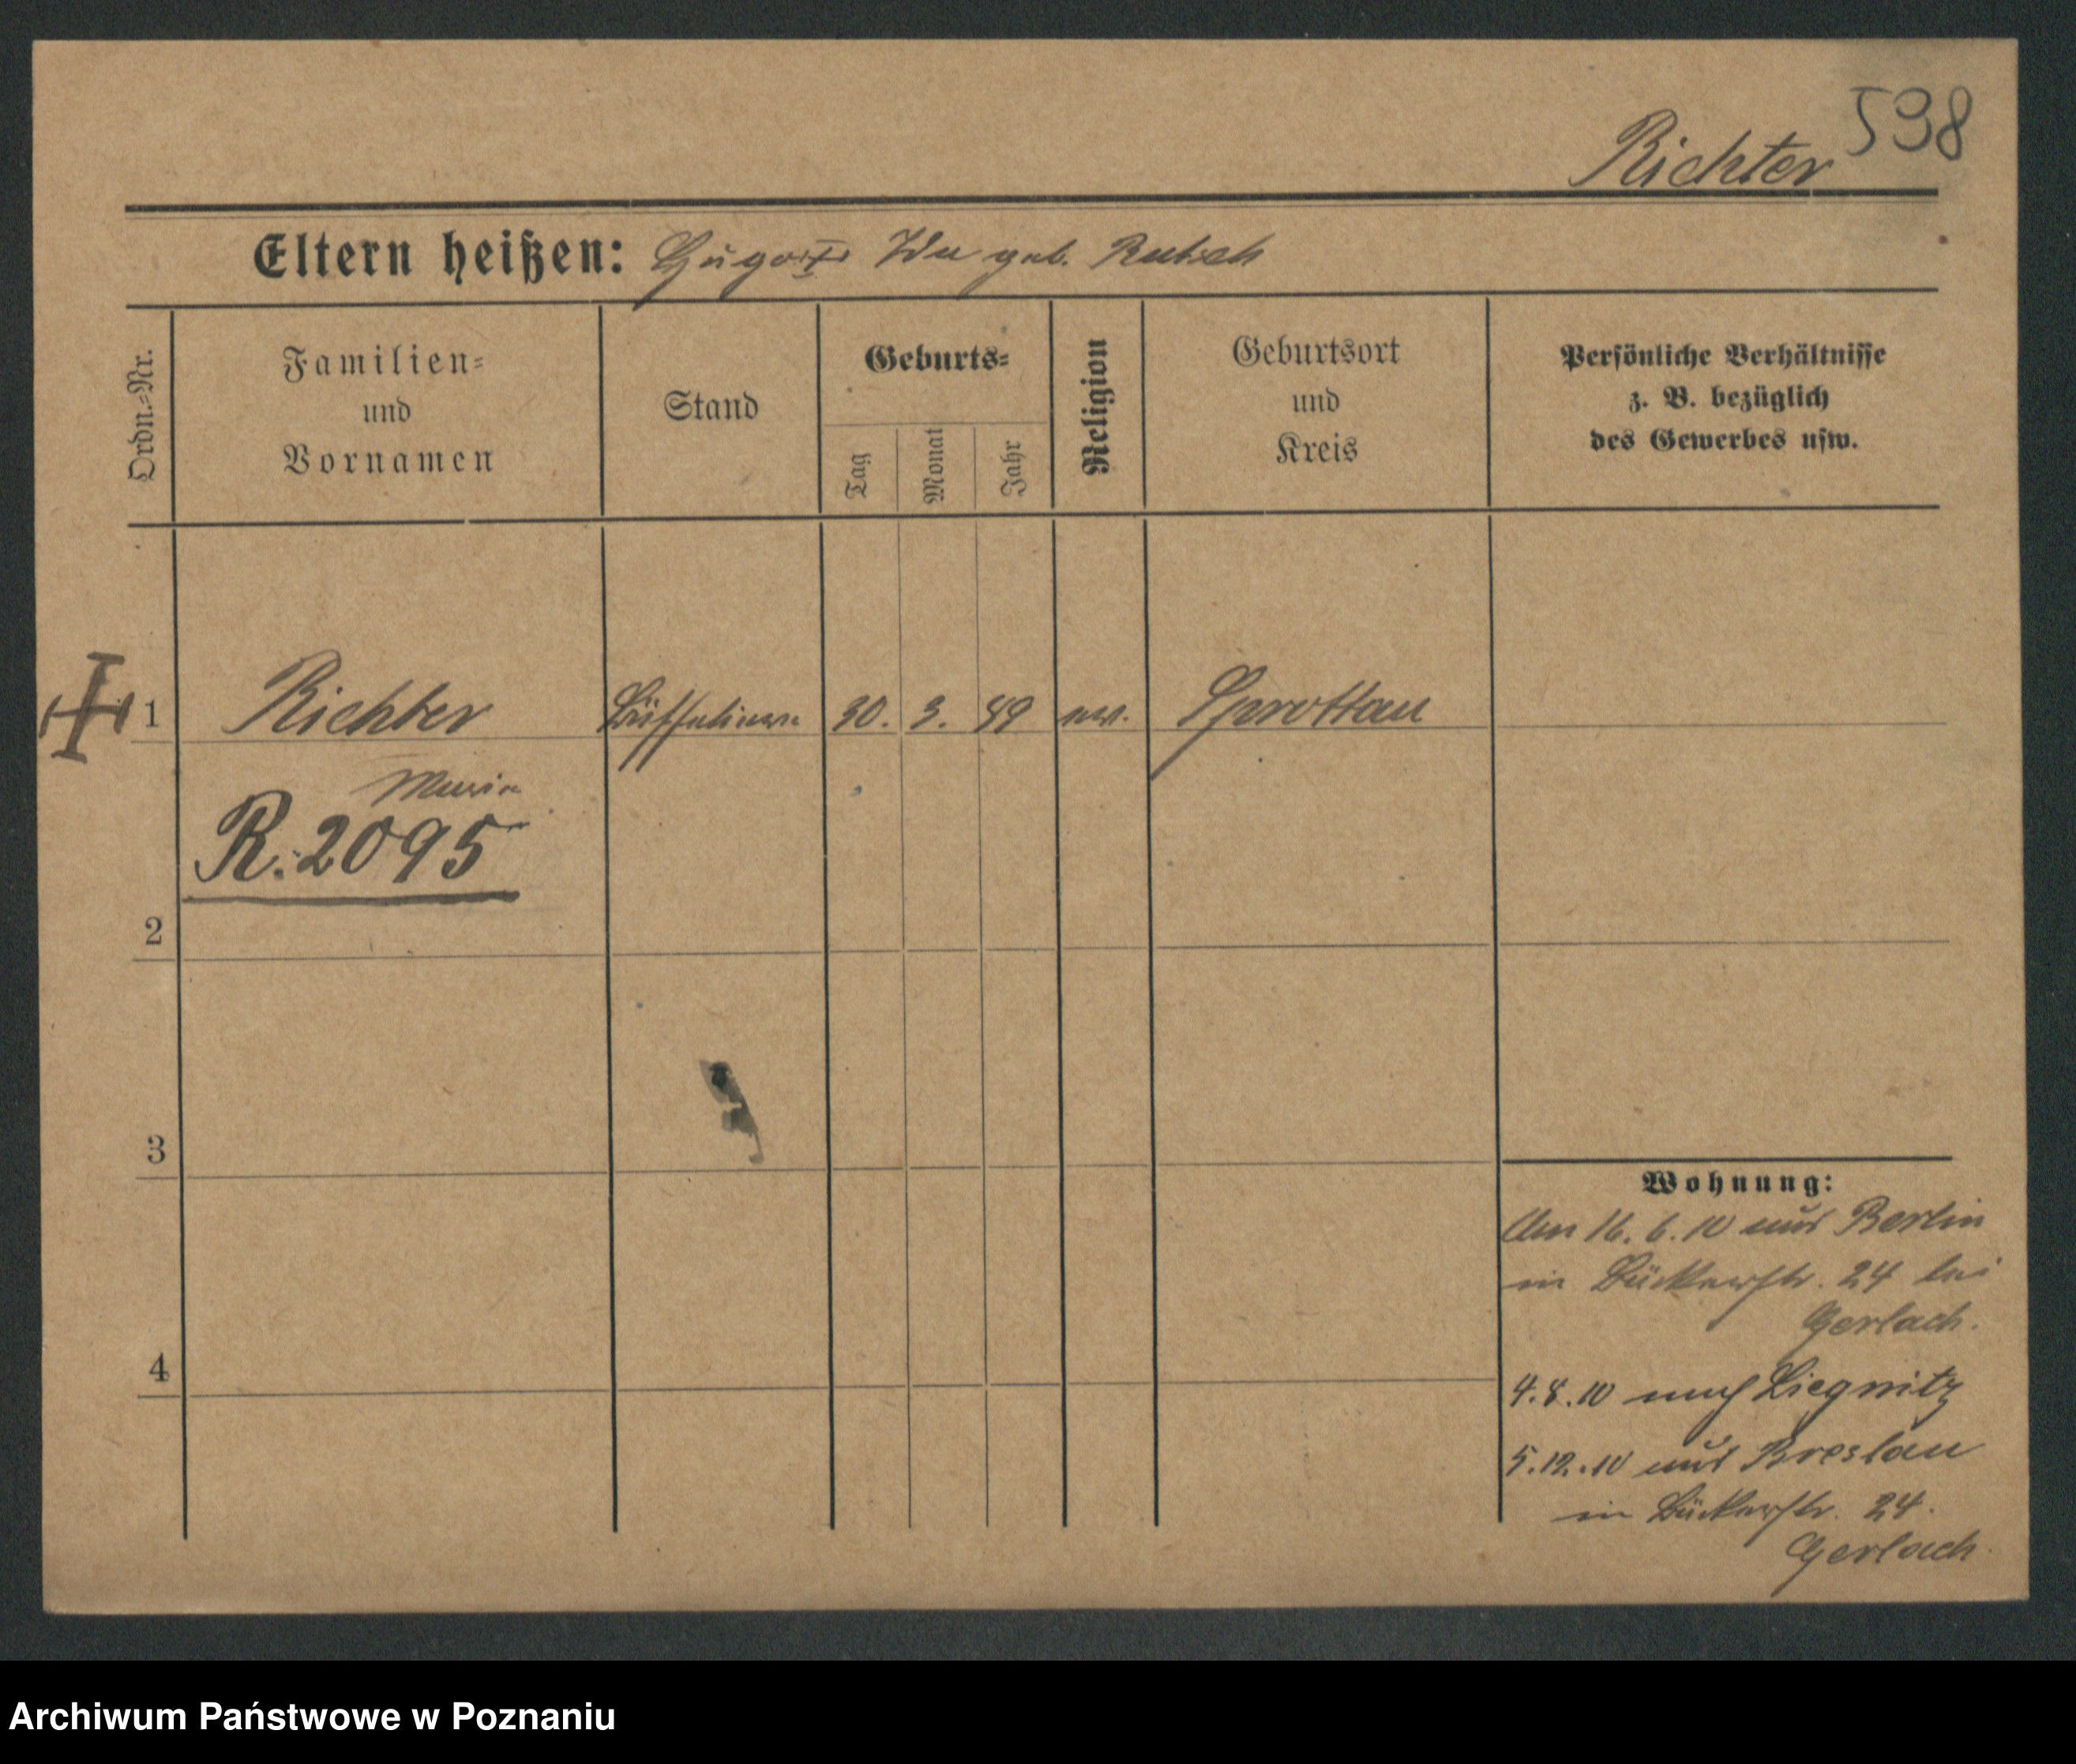 538
Richter
Eltern heißen: Hugo geb.
Ordn.=Nr.
Familien=
und
Vornamen
Stand
Geburts=
Tag
Monat
Jahr
Religion
Geburtsort
und
Kreis
Persönliche Verhältnisse
z. B. bezüglich
des Gewerbes usw.
1 Richter 30. 3. 89 ev. Sprottau
Maria
R. 2095
2
3
4
Wohnung:
Am 16. 6. 10 aus Berlin
in Bäckerstr. 24 bei
Gerlach.
4. 8. 10 nach Liegnitz
5. 12. 10 aus Breslau
in Bäckerstr. 24.
Gerlach
Archiwum Państwowe w Poznaniu